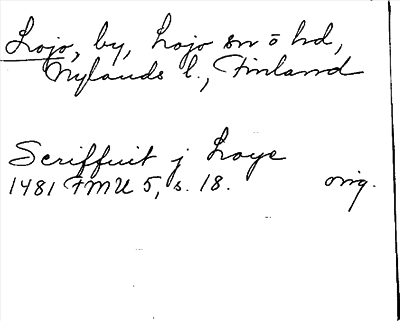 Lojo, by, Lojo sn o hd,
Nylands l., Finland
Scriffuit j Loye
1481 FMU 5, s. 18. orig.